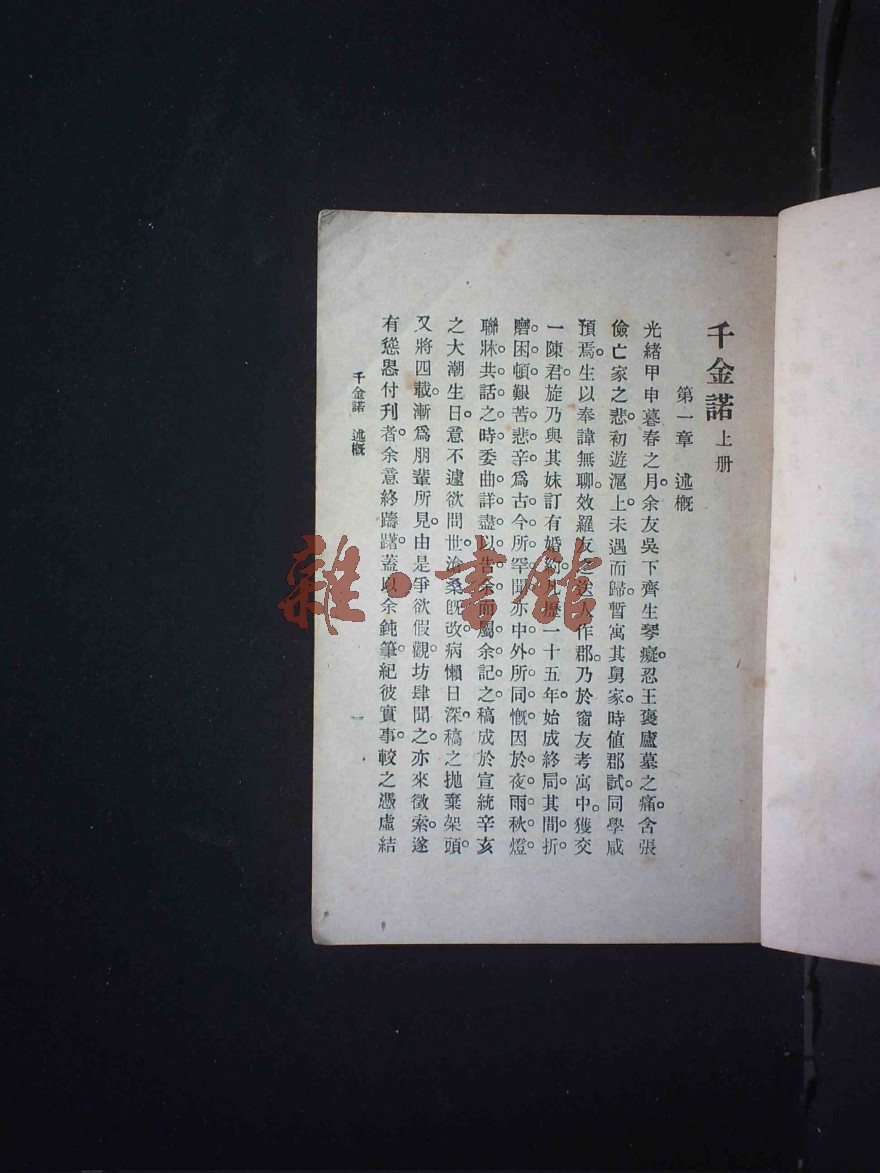 千金諾 上册
第一章 述概
光緒甲申暮春之月。余友吳下齊生琴癡。忍王裒廬墓之痛。含張
儉亡家之悲。初遊滬上。未遇而歸。暫寓其舅家。時值郡試。同學咸
預焉。生以奉諱無聊。效羅友之送人作郡。乃於窗友考寓中。獲交
一陳君。旋乃與其妹訂有婚約。凡歷一十五年。始成終局。其間折
磨困頓。艱苦悲辛。爲古今所罕聞。亦中外所同慨。因於夜雨秋燈。
聯牀共話之時。委曲詳盡以告余。而屬余記之。稿成於宣統辛亥
之大潮生日。意不遽欲問世。滄桑旣改。病懶日深。稿之抛棄架頭。
又將四載。漸爲朋輩所見。由是爭欲假觀。坊肆聞之。亦來徵索。遂
有慫恿付刊者。余意終躊躇。蓋以余鈍筆。紀彼實事。較之憑虛結
千金諾 述概
一
雜·書館